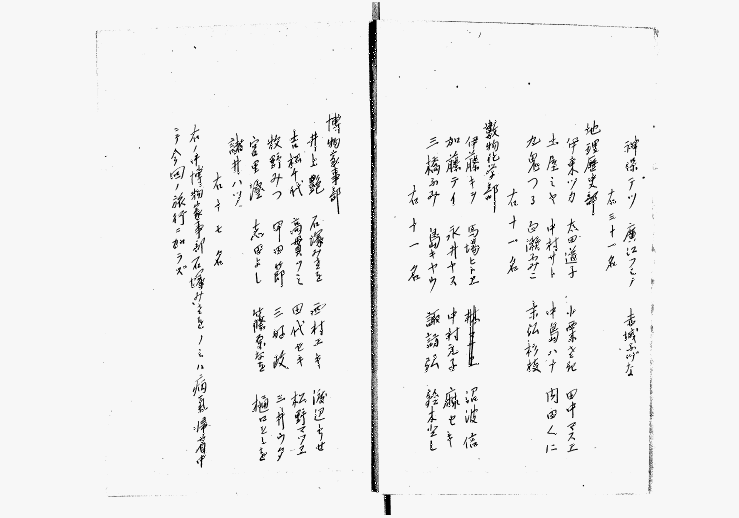 神保テツ 廣江フミノ 赤城ふかな
右三十一名
地理歴史部
伊東ツカ 太田道子 小栗さだ 田中マスエ
土屋ミヤ 中村サト 中島ハナ 内田くに
九鬼つる 白瀬ふみこ 末弘お枝
右十一名
数物化学部
伊藤キク 馬場ヒトエ 沼波信
加藤テイ 永井ヤス 中村元子 麻セキ
三橋ふみ 島キヤウ 諏訪弘 鈴木
右十一名
博物家事部
井上艶 石塚みさを 西村ユキ 渡辺ちせ
吉松千代 高貫ツミ 田代セキ 松野マツエ
牧野みつ 甲田節 三好政 三井ウタ
宮里澄 志田よし 藤原なを 樋口としを
諸井ハツ
右十七名
右ノ中博物家事部石塚みさをノミハ病気帰省中
ニテ今回ノ旅行ニ加ラズ